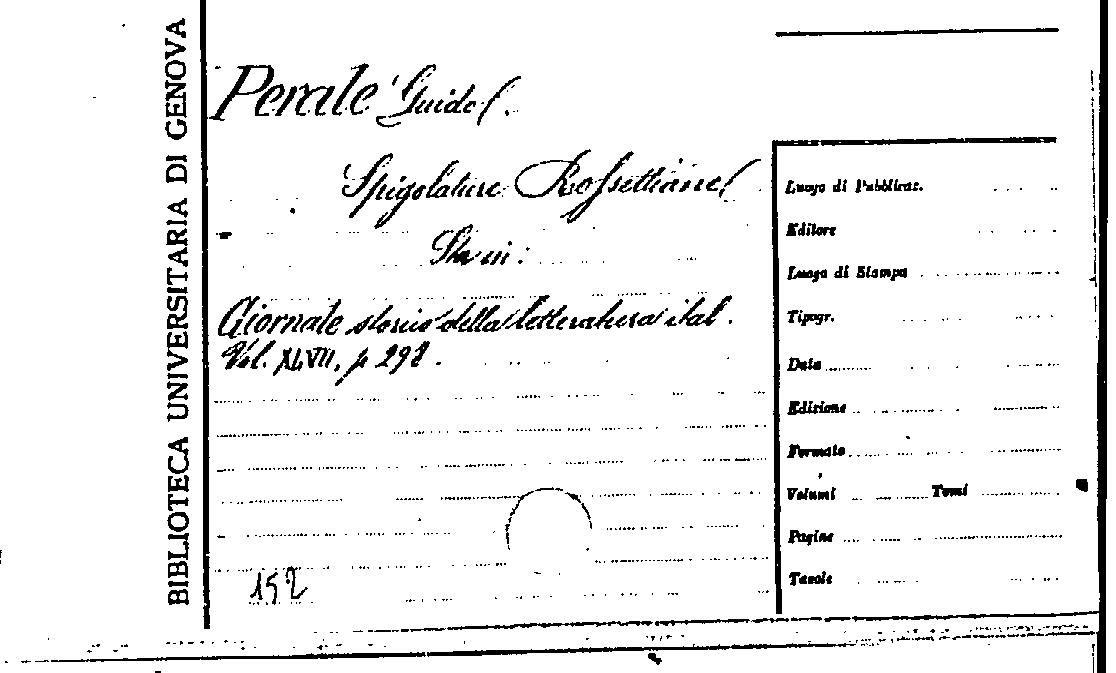 BIBLIOTECA UNIVERSITARIA DI GENOVA
Perale Guido.
Spigolature Rossettiane
Sta in:
Giornale storico della letteratura ital.
Vol. XLVII, p 298.
152
Luogo di Pubblicaz.
Editore
Luogo di Stampa
Tipogr.
Data
Edizione
Formato
Volumi Tomi
Pagine
Tavole